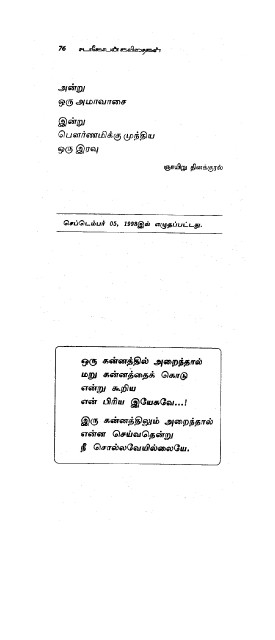 76
அன்று
ஒரு அமாவாசை
இன்று
பௌர்ணமிக்கு முந்திய
ஒரு இரவு
ஞாயிறு தினக்குரல்
செப்டெம்பர் 05, 1998இல் எழுதப்பட்டது.
ஒரு கன்னத்தில் அறைந்தால்
மறு கன்னத்தைக் கொடு
என்று கூறிய
என் பிரிய இயேசுவே...!
இரு கன்னத்திலும் அறைந்தால்
என்ன செய்வதென்று
நீ சொல்லவேயில்லையே.